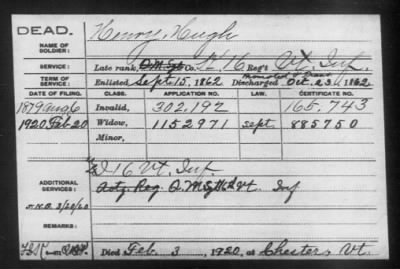 DEAD. Henry, Hugh
NAME OF SOLDIER:
SERVICE: Late rank, Q.M.Sgt Co. 16 Reg't Vt. Inf.
TERM OF SERVICE: Enlisted Sept. 15, 1862 Discharged Oct. 23, 1862
DATE OF FILING. CLASS. APPLICATION NO. LAW. CERTIFICATE NO.
1879 Aug 6 Invalid, 302.192 165.743
1920 Feb 20 Widow, 1152971 Sept. 885750
Minor,
ADDITIONAL SERVICES: 16 Vt. Inf
Actg. Reg. Q.M.Sgt Vt. Inf
3/20/20
REMARKS:
Died Feb. 3, 1920, at Chester, Vt.